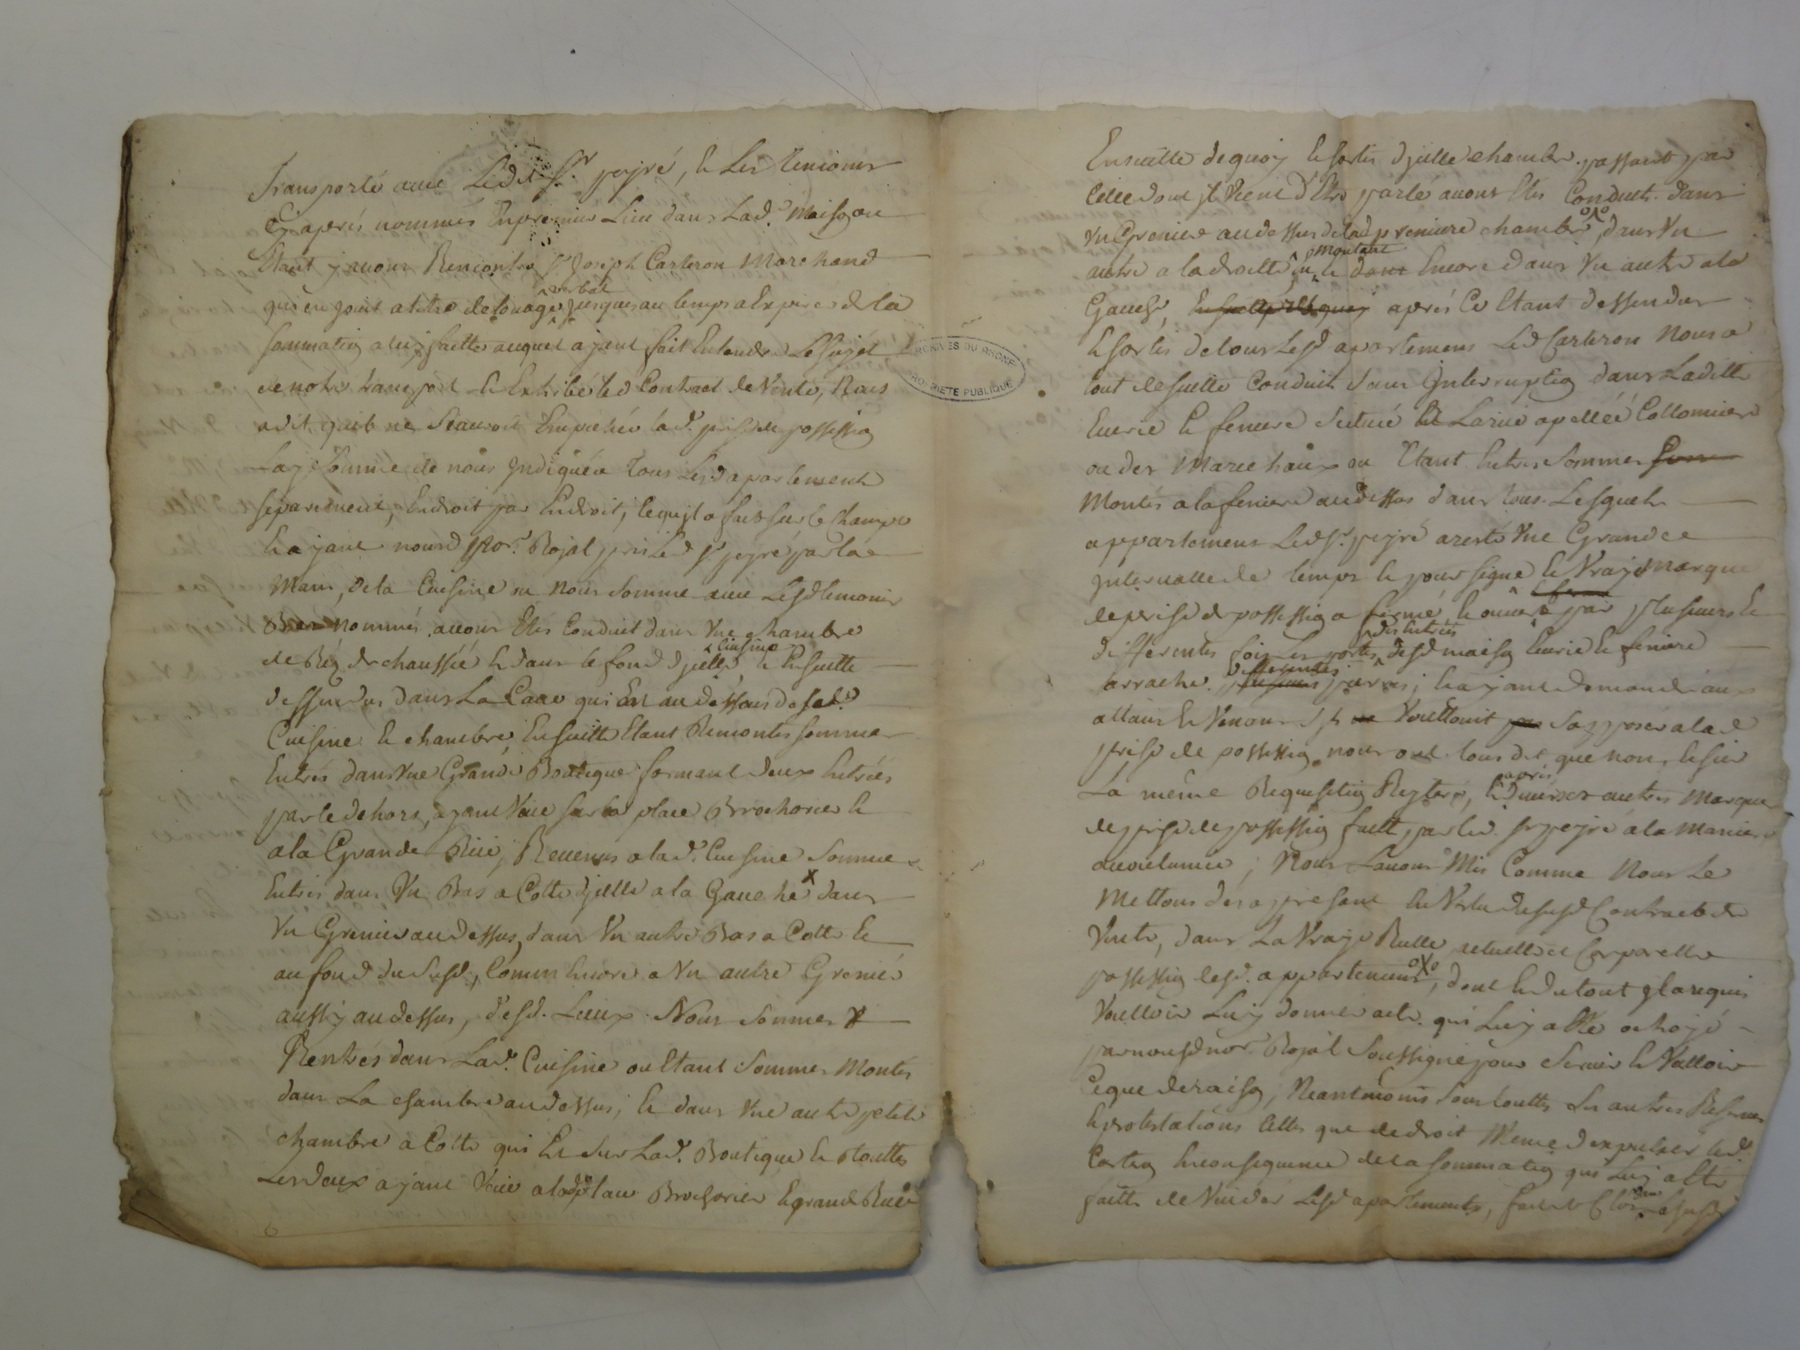 Transporté avec Ledit Sr. peyré, & Les Temoins
Cy apres nommés En premier Lieu dans Lad.e Maison ou
Etant y avons Rencontré Sr. Joseph Carteron Marchand
qui en jouit a titre de louage verbale jusques au temps a Expirer de la
sommation a luy faitte auquel ayant fait Entendre Le sujet
de notre transport & Exhibé led Contract de Vente, Nous
a dit quil ne Scauroit Empecher lad. prise de possession
Layt Somme de nous Indiquér Tous Lesd apartements
separement, Endroit par Endroit, Ce quil a fait sur le Champ
& ayant nousd Nore. Rojal pris led Sr peyré par la
Main, de la Cuisine ou Nous Somme avec Lesd temoins
nommés avons Etés Conduit dans Vne chambre
de Réz de chaussée & dans le fond djcelle Cuisine & Ensuitte
dessendus dans La Cave qui Est au dessous de lad.e
Cuisine & chambre, Ensuitte Etant Remontés sommes
Entrés dans Vne Grande Boutique formant deux Entrées
par le dehors, ayant Vüe sur la place Brochorier &
a la Grande Rüe, Revenus a lad.e Cuisine Sommes
Entrés dans Vn Bas a Cotte djcelle a la Gauche x dans
Vn Grenier au dessus, dans Vn autre Bas a Cotte &
au fond du Susd., Comm Encore a Vn autre Grenié
aussy au dessus, desd. Lieux. Nous Sommes
Rentrés dans Lad.e Cuisine ou Etant Sommes Montés
dans La chambre au dessus, & dans Vne autre petite
chambre a Cotte qui Est Sur Lad.e Boutique & Touttes
Les deux ayant Vüe a lad place Brochorier & grande Rüe
Ensuitte de quoy & sortis djcelle chambre passant par
Celle dont jl Vient d'Etre parlé avons Etés Conduits dans
Vn Grenier au dessus de lad premiere chambre, dans Vn
autre a la droitte montant & de dans Encore dans Vn autre a la
Gauche, Ensuitte de quoy après Ce Etant dessendus
& sortis de tous Lesd apartemens Led Carteron Nous a
tout de suitte Conduit sans Interruption dans Laditte
Ecurie & feniere Scituée La rüe apellée Collomniere
ou des Marechaux ou Etant Entrés Sommes
Montés a la feniere au dessus dans tous Lesquels
appartemens Led Sr. peyré aresté Vne Grande
Intervalle de temps & pour signe & Vraye Marque
de prise de possession a fermé & ouvert par plusieurs &
differentes fois les portes des Entrées desd maison Ecurie & feniere
arraché differentes pierres; & ayant demandé aux
allans & Venans Sjls Voulloit Sopposer a lad
prise de possession nous ont tous dit que non, & sur
La même Requisition Reyteré, & apres diverses autres Marques
de prise de possession faitte par led. Sr peyré a la Maniere
accoutumée; Nous Lavons Mis Comme Nous Le
Mettons dés apresent En Vertu du Susd Contract de
Vente, dans La Vraye Reelle, actuelle et Corporelle
possession desd. appartemens, dont & du tout jl a requis
Voulloir Luy donner acte qui Luy a Eté octroyé
par nousd nore. Rojal Soussigné pour Servir & Valloir
Ce que de raison, Neantmoins Sous touttes Ses autres Reserves
& protestations telles que de droit Même d'expulser led
Carteron En consequence de la sommation qui Luy a Eté
faitte de Vuider Lesd apartements, fait & Clos